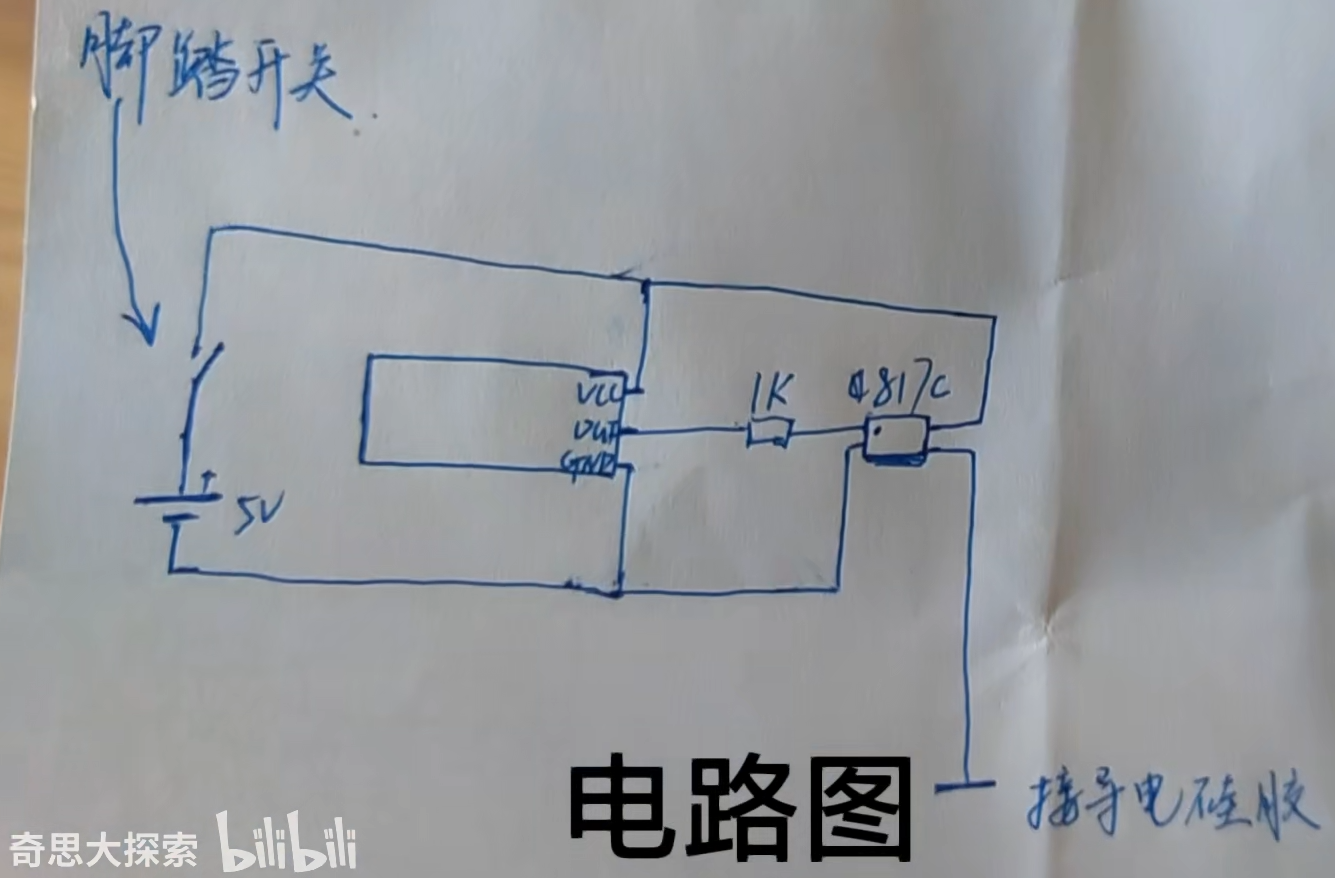 脚踏开关
VCC
OUT
GND
1K
817C
+
5V
接导电硅胶
电路图
奇思大探索 bilibili